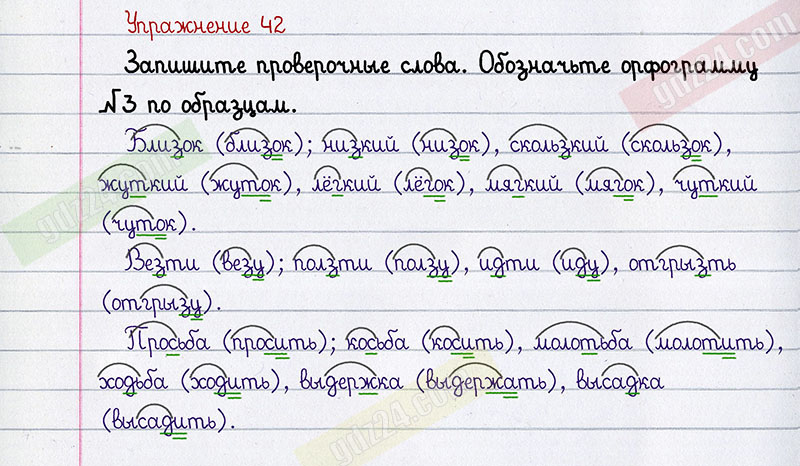 Упражнение 42
Запишите проверочные слова. Обозначьте орфограмму
№3 по образцам.
Близок (близок); низкий (низок), скользкий (скользок),
жуткий (жуток), лёгкий (лёгок), мягкий (мягок), чуткий
(чуток).
Везти (везу); ползти (ползу), идти (иду), отгрызть
(отгрызу).
Просьба (просить); косьба (косить), молотьба (молотить),
ходьба (ходить), выдержка (выдержать), высадка
(высадить).
gdz24.com
gdz24.com
gdz24.com